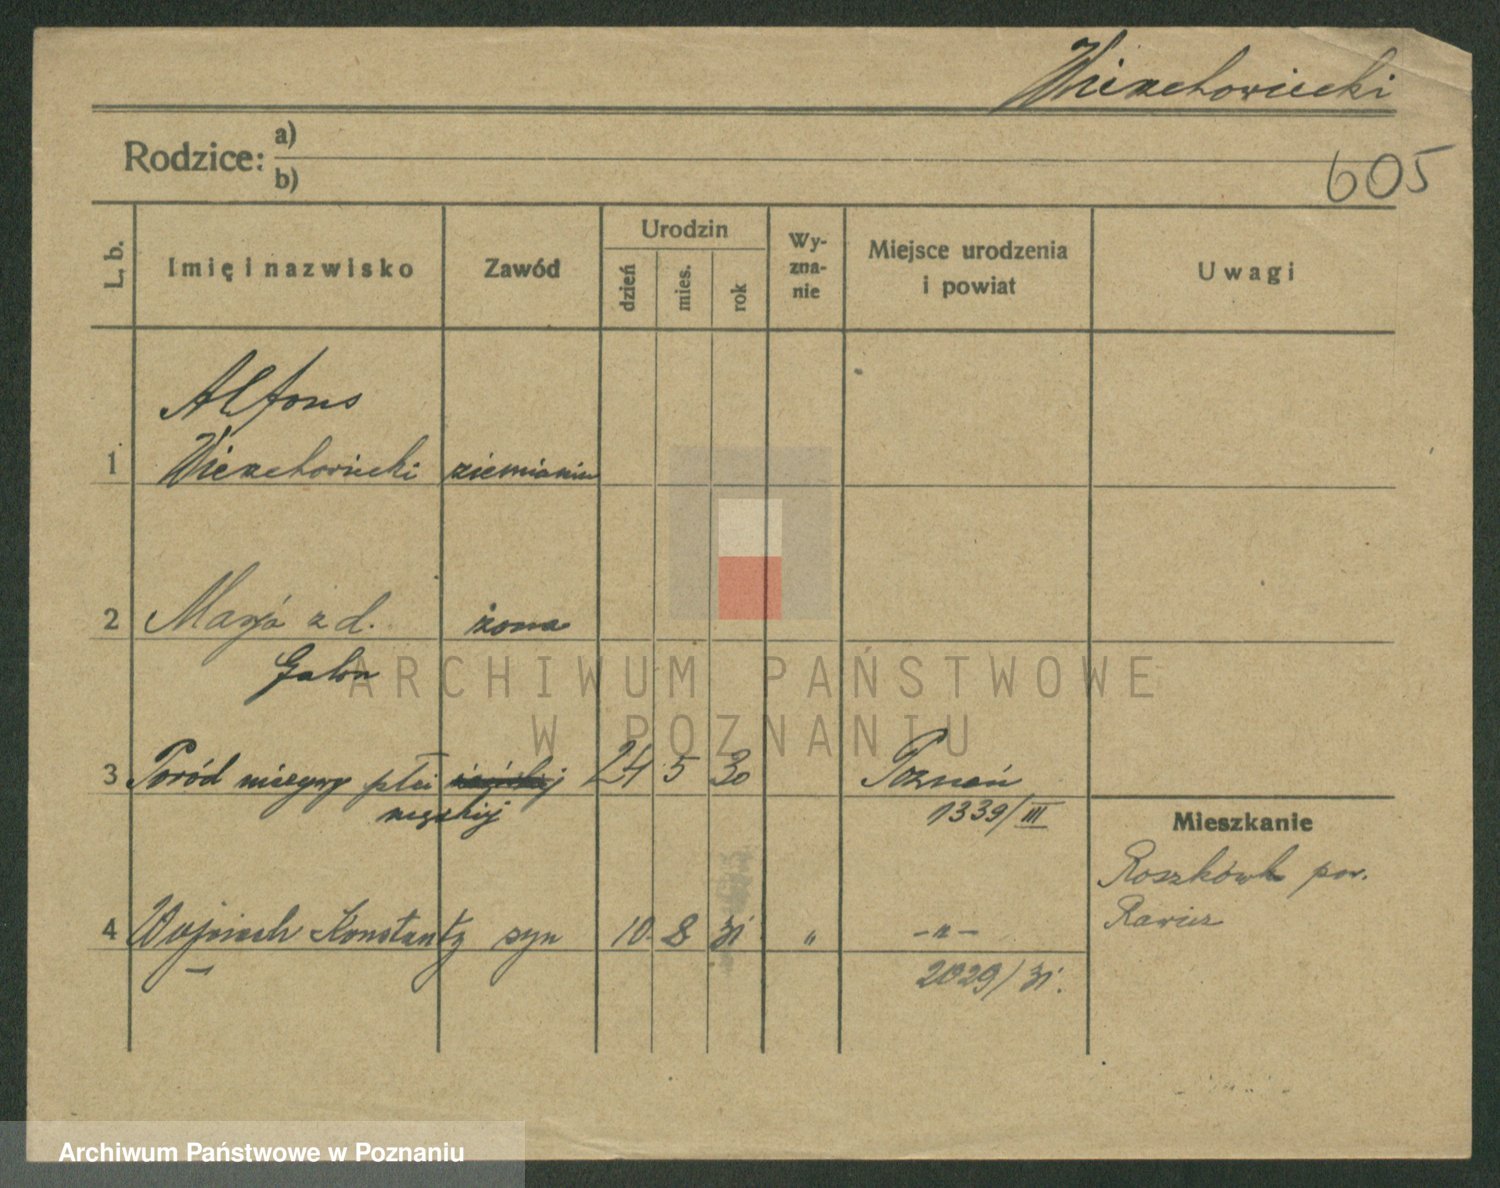 Wierzchowiecki
605
Rodzice: a)
b)
L. b.
Imię i nazwisko
Zawód
Urodzin
dzień
mies.
rok
Wy-
zna-
nie
Miejsce urodzenia
i powiat
Uwagi
Alfons
1 Wierzchowiecki ziemianin
2 Marja z d. żona
Galon
3 Poród nieżywy płci żeńskiej 24 5 30 Poznań
męskiej 1339/III
Mieszkanie
Roszkówk pow.
Rawicz
4 Wojciech Konstanty syn 10 8 31 " -"-
2029/31.
ARCHIWUM PAŃSTWOWE
W POZNANIU
Archiwum Państwowe w Poznaniu